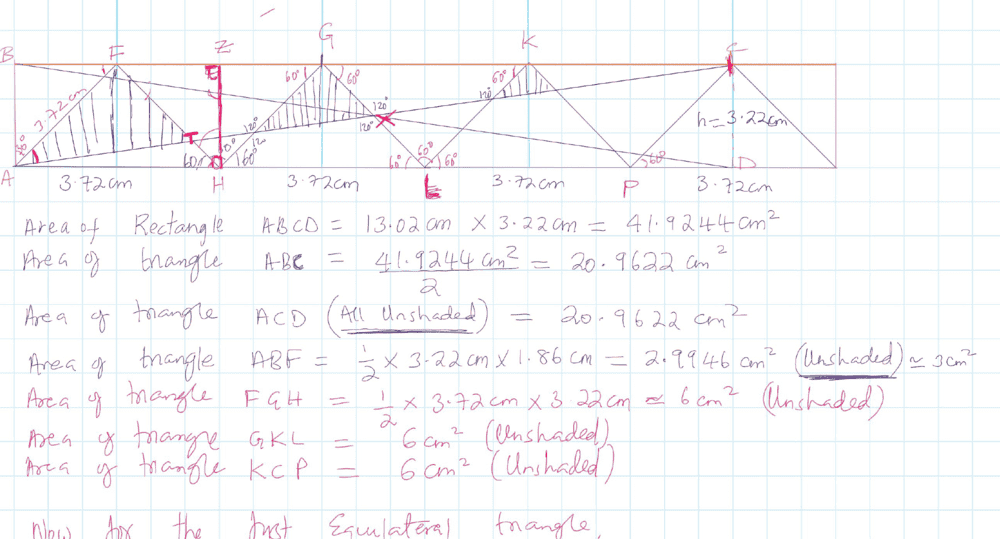 G
B F Z K C
E
60° 60° 60°
3.72cm
120°
120°
120°
h=3.22cm
T
60° 60° 60° 60° 60° 60°
A H L P D
3.72cm 3.72cm 3.72cm 3.72cm
Area of Rectangle ABCD = 13.02cm × 3.22cm = 41.9244cm²
Area of triangle ABC = 41.9244cm²/2 = 20.9622cm²
Area of triangle ACD (All Unshaded) = 20.9622cm²
Area of triangle ABF = 1/2 × 3.22cm × 1.86cm = 2.9946cm² (Unshaded) ≃ 3cm²
Area of triangle FGH = 1/2 × 3.72cm × 3.22cm ≃ 6cm² (Unshaded)
Area of triangle GKL = 6cm² (Unshaded)
Area of triangle KCP = 6cm² (Unshaded)
Now for the first Equilateral triangle,